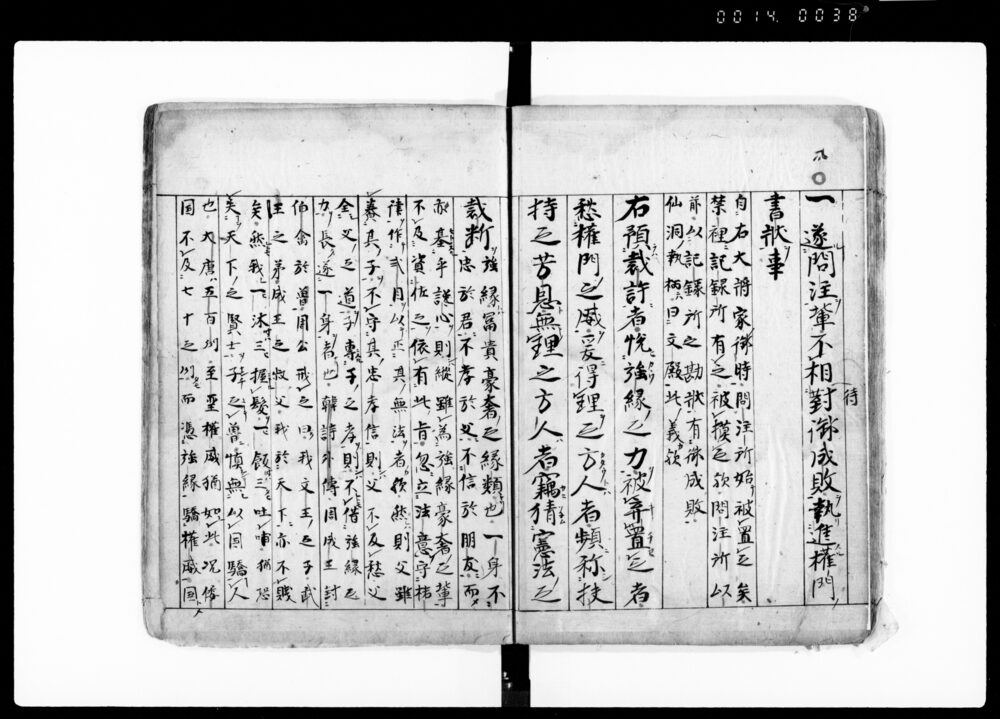 0014 0038
一 遂問注輩不相對御成敗執進權門
待
書狀事
自右大將家御時問注所始被置之矣
禁裡記録所有之被摸之欤問注所以
前以記録所之勘狀有御成敗
仙洞執柄日文殿此義欤
右預裁許者悅強緣之力被弃置之者
愁權門之威爰得理之方人者頻称扶
持之芳恩無理之方人者竊猜憲法之
裁断 強緣冨貴豪奢之緣類也一身不
忠於君不孝於父不信於朋友而
基乎談心則縱雖為強緣豪奢之輩
不及資佐之依有此旨忽立法意守
律作式目以正其無法者欤然則父雖
其子不守其忠孝信則父不及愁父
父之道子專子之孝則不借強緣之
力長遂一身者也韓詩外傳周成王封
伯禽於魯周公戒之曰我文王之子武
王之弟成王之叔父我於天下亦不賤
矣然我一沐三握髮一飯三吐哺猶恐
失天下之賢士子之魯慎無以国驕人
也大唐五百州至聖權威猶如此况倭
国不及七十之州而憑強緣驕權威国